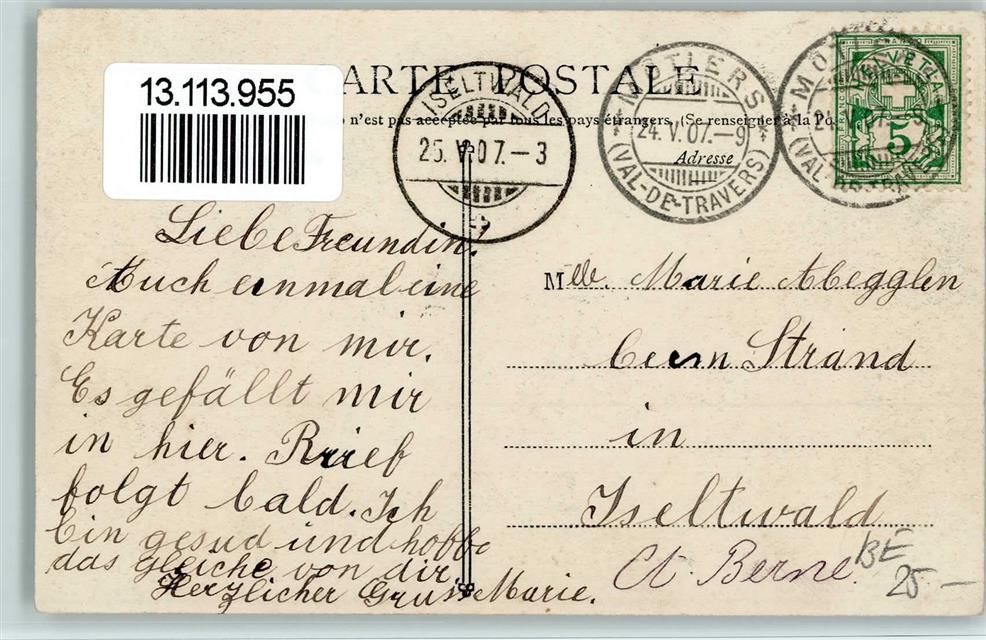 13.113.955
CARTE POSTALE
n'est pas acceptée par tous les pays étrangers. (Se renseigner à la Po
ISELTWALD
25. V. 07. – 3
MOTIERS
24. V. 07. – 9
(VAL-DE-TRAVERS)
MOTIERS
24.
(VAL-DE-TRAVERS)
HELVETIA
5
Adresse
Liebe Freundin.
Auch einmal eine
Karte von mir.
Es gefällt mir
in hier. Brief
folgt bald. Ich
bin gesud und hoffe
das gleiche von dir,
Herzlicher Gruss Marie.
Mlle. Marie Abegglen
beim Strand
in
Iseltwald
Ct. Berne.
BE
25 –